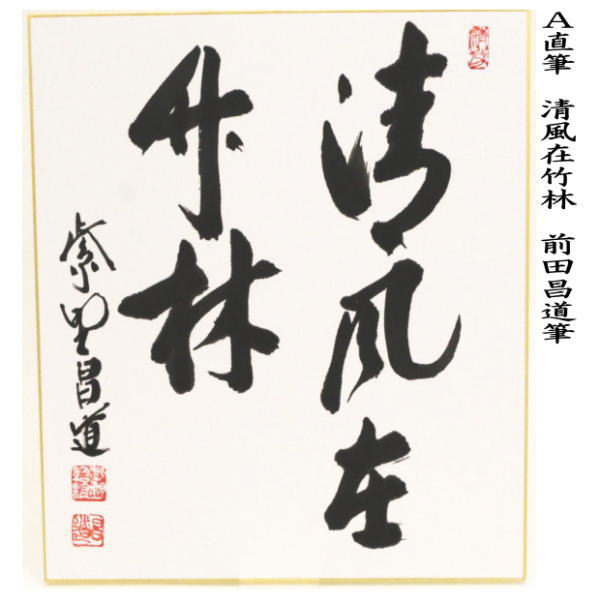 A直筆 清風在竹林 前田昌道筆
清風在
竹林
紫野昌道